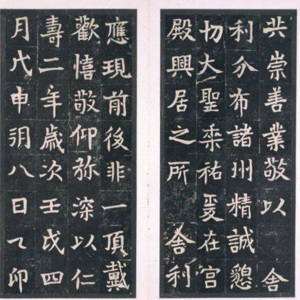 共崇善業敬以 舍
利分布諸州精誠懇
切大聖垂祐爰在宮
殿興居之所 舍利
應現前後非一頂戴
歡憘敬仰弥深以仁
壽二年歲次壬戌四
月戊申朔八日乙卯